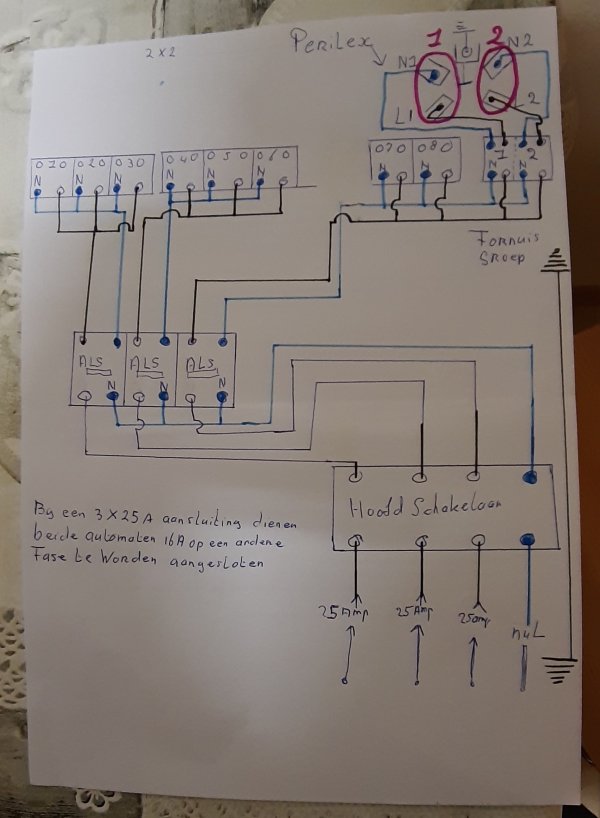 2 x 2
Perilex
1 E 2
N1 N2
L1 2
010 020 030 040 050 060 070 080 1 2
N N N N N N N N N N
Fornuis
Groep
ALS ALS ALS
N N N
Hoofd Schakelaar
By een 3 x 25 A aansluiting dienen
beide automaten 16A op een andere
Fase te worden aangesloten
25Amp 25Amp 25amp nul